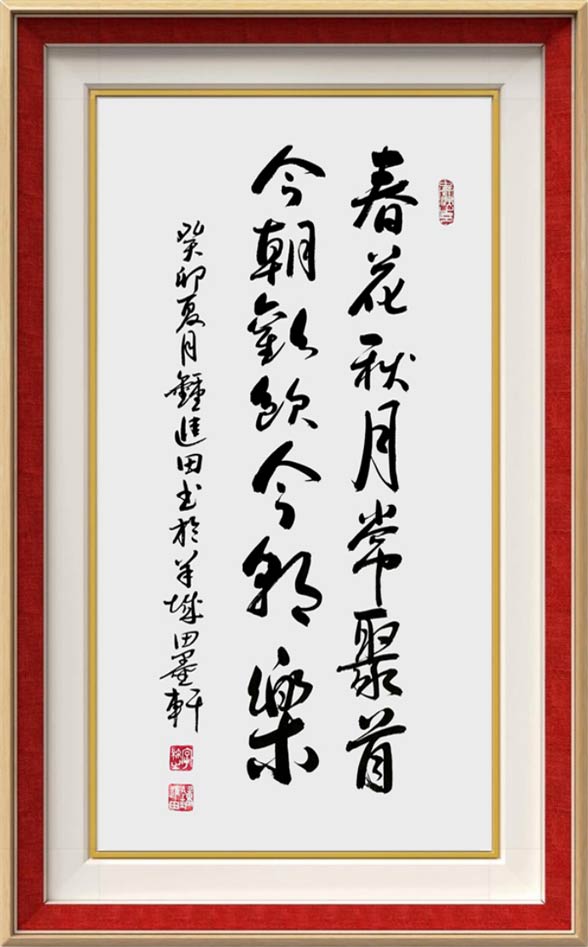 春花秋月常聚首
今朝歡飲今朝樂
癸卯夏月鍾進田书於羊城田墨軒